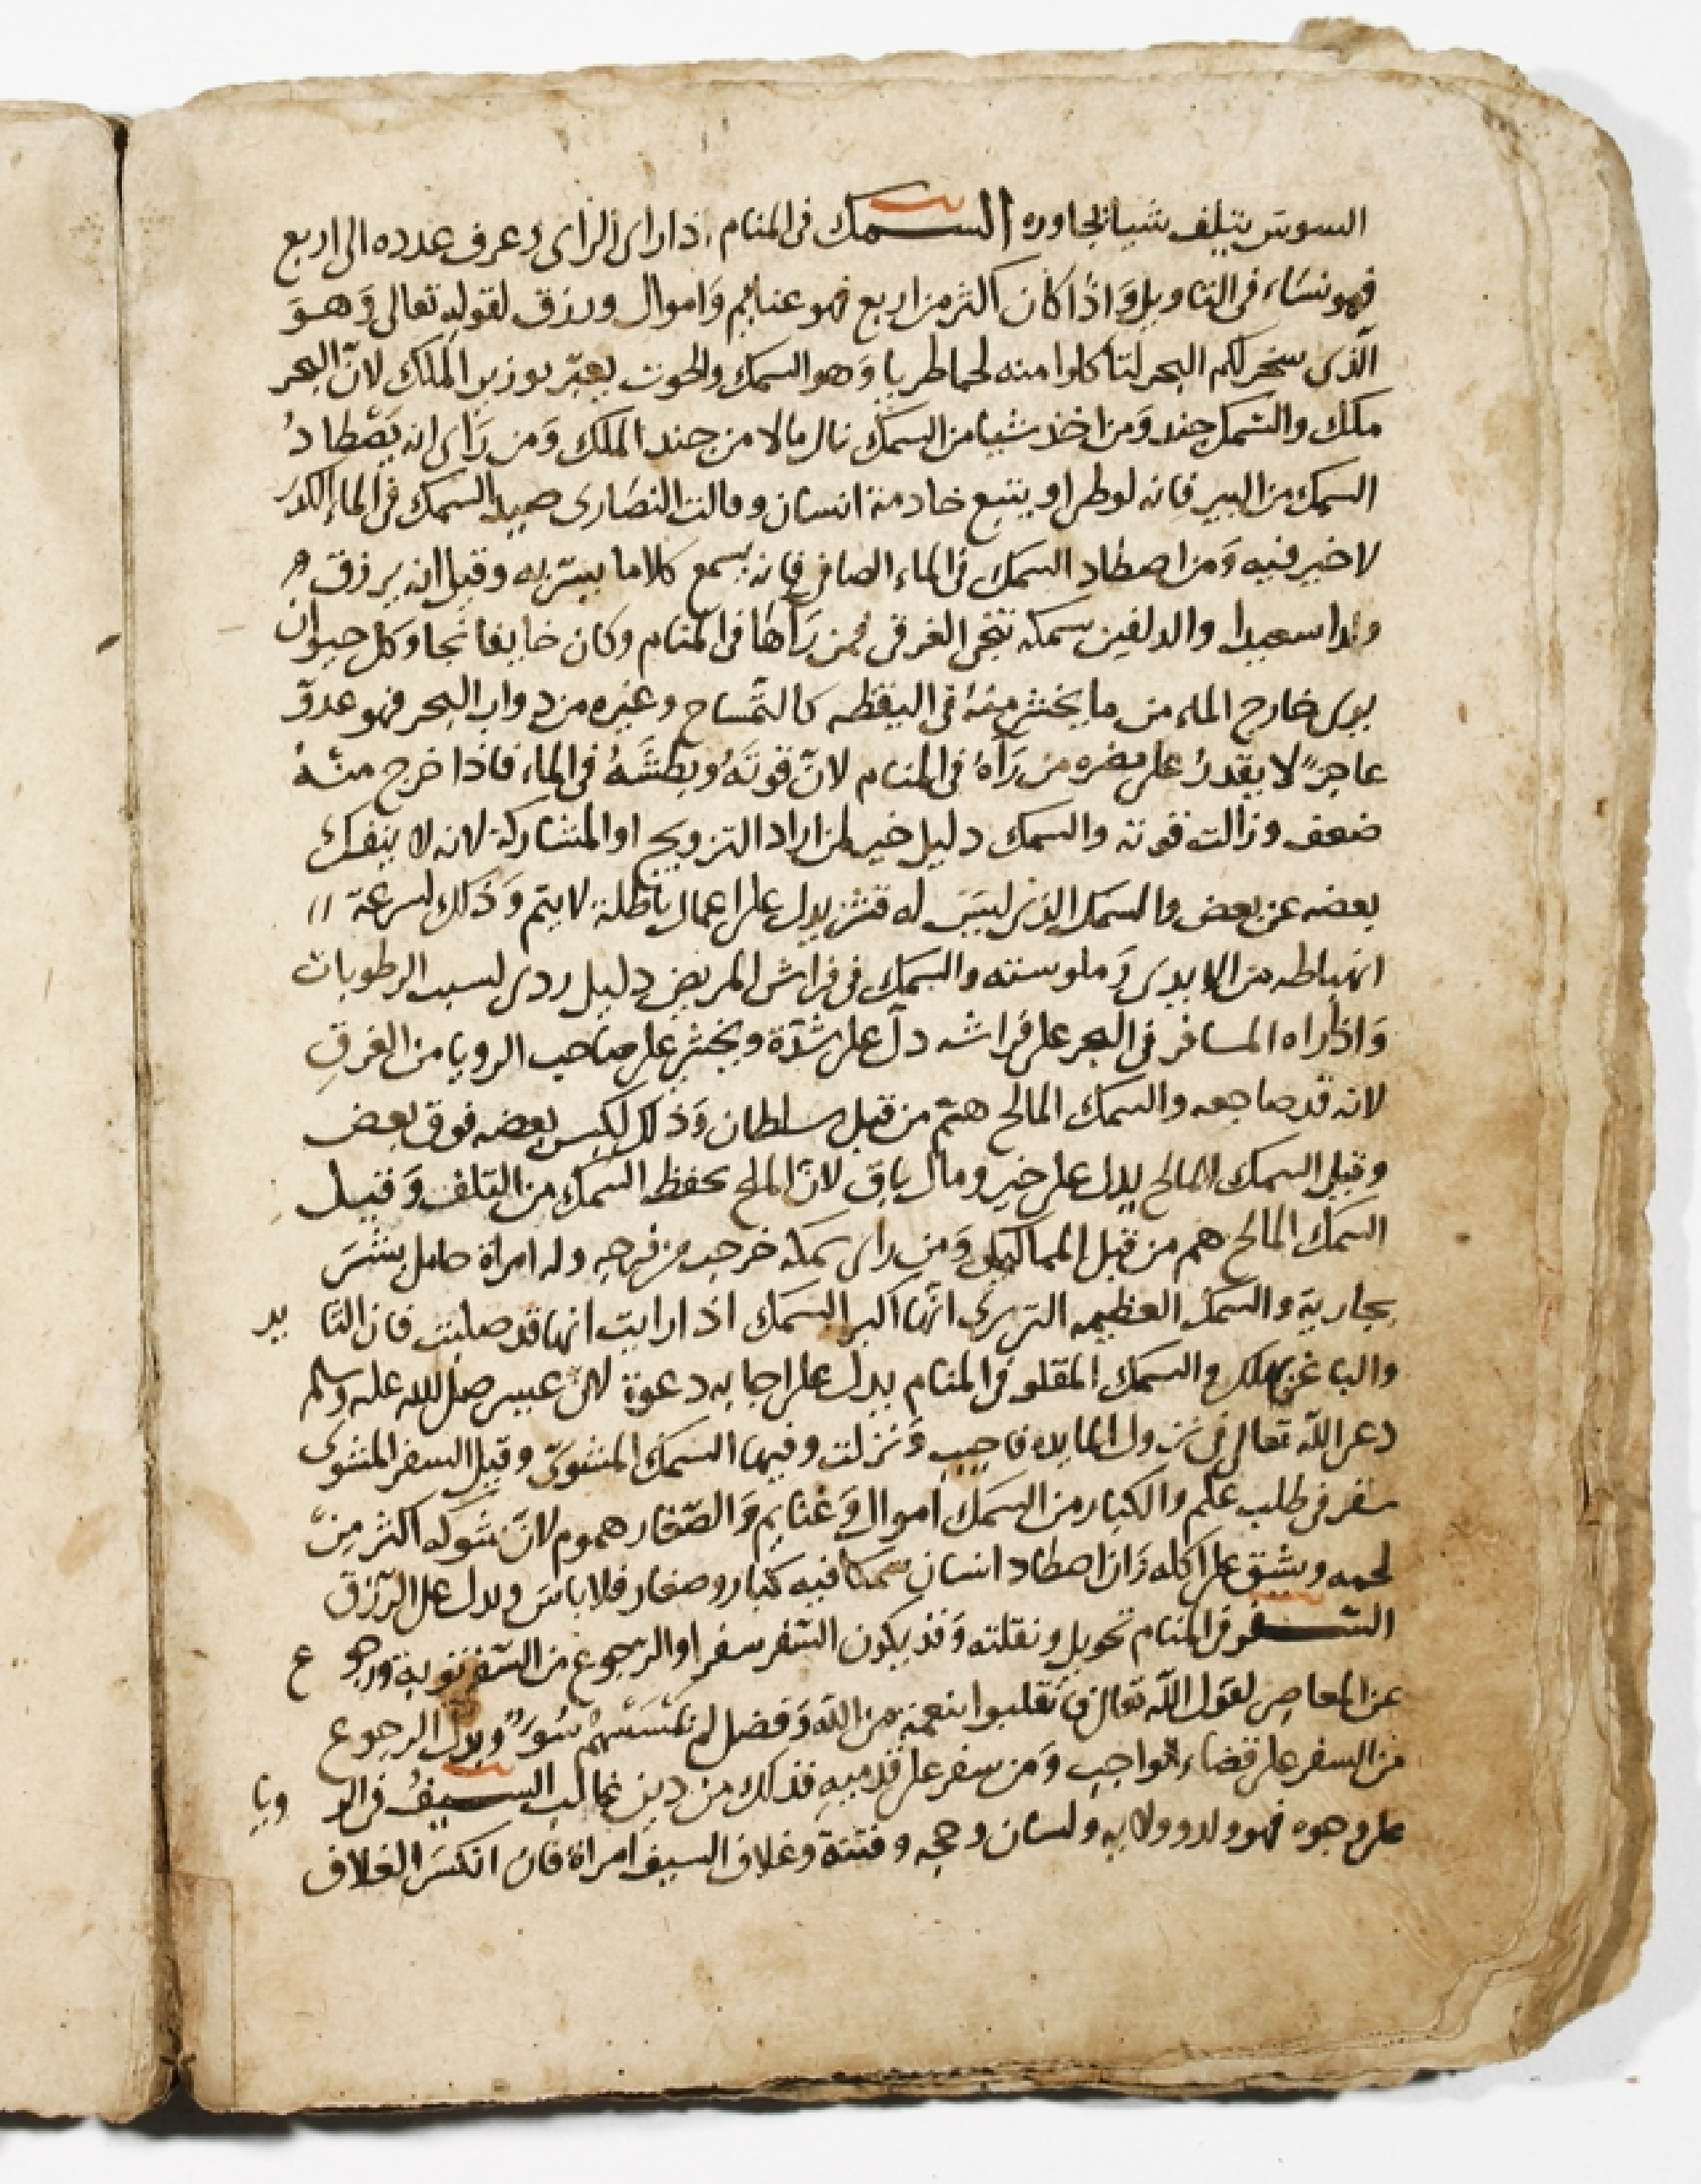 السوس يتلف شيا يجاوره السمك فى المنام اذا راى الراى وعرف عدده الى اربع
فهو نسَاء فى التاويل وَاذا كان اكثر من اربع فهو غنايم وَاموال ورزق لقوله تعالى وَهوَ
الّذى سخر لكم البحر لتاكلوا منه لحما طريا وَهو السمك والحوت يعبّر بوزير الملك لانّ البحر
ملك والسمك جند وَمن اخذ شيا من السمك نال مالا من جند الملك وَمن رَاى انه يصْطادُ
السمك من البير فانه لوطى او يتبع خادمة انسان وقالت النصَارى صيد السمك فى الماء الكدر
لا خير فيه وَمن اصطاد السمك فى الماء الصافى فانه يسمع كلاما يسّر به وقيل انه يرزق
ولدا سعيدا والدلفين سمكه تنجى الغرقى فمن رَآها فى المنام وكان خايفا نجا وكل حيوان
يرى خارج الماء من ما يخشى منهُ فى اليقظه كالتّمساح وغيره من دواب البحر فهو عدوّ
عاجزٌ لا يقدرُ على مضره من رَآهُ فى المنام لانّ قوتَهُ وبطشَهُ فى الماء فاذا خرج منْهُ
ضعف وزالت قوته والسمك دليل خير لمن اراد التزويج او المشاركة لانه لا ينفك
بعضه عن بعض والسمك الذى ليسَ له قشر يدل على اعمال باطلة لا يتم وَذلك لسرعة
انهباطه من الايدى وَملوسته والسمك فى فراش المريض دليل ردى لسبب الرطوبات
وَاذا راه المسافر فى البحر على فراشه دلّ على شدّة ويخشى على صاحب الرويا من الغرقِ
لانه قد صاجعه والسمك المالح همّ من قبل سلطان وَذلك لكبس بعضه فوق بعض
وقيل السمك المالح يدل على خير ومال باق لانّ الملح يحفظ السمك من التلف وَقيل
السمك المالح هم من قبل المماليك وَمن راى سمكه خرجت من فرجه وله امراة حامل بشّرَ
بجارية والسمك العظيمه التى يرى انّها اكبر السمك اذا رايت انها قد صلبت فان التا يد
والباغى هلك والسمك المقلو فى المنام يدل على اجابه دعوة لانّ عيسى صلى الله عليه وسلم
دعى الله تعالى فى نزول المايده فاجيب وَنزلت وفيها السمك المشوىّ وقيل السفر المشوى
سفر فى طلب علم والكبار من السمك اموال وَغنايم وَالصّغار هموم لانّ شوكه اكثر مِنْ
لحمه ويشق على اكله وَان اصطاد انسان سمكا فيه كبار وصغار فلا باسَ ويدل على الرّزق
السّفر فى المنام تحويل ونقلته وَقد يكون السّفر سفرا والرّجوع من السّفر توبة ورجو ع
عن المعاصى لقول اللّه تعالى فانقلبوا بنعمة من اللّه وَفضل لم يمْسَسْهُمْ سُوءٌ ويدل الرجوع
من السفر على قضاء الواجب وَمن سفر على قدميهِ فذلك من دين غالب السيف فى الر ويا
على وجوه فهو ولد وولايه ولسان وحجه وفتنة وغلاف السيف امراة فان انكسَر الغلاف